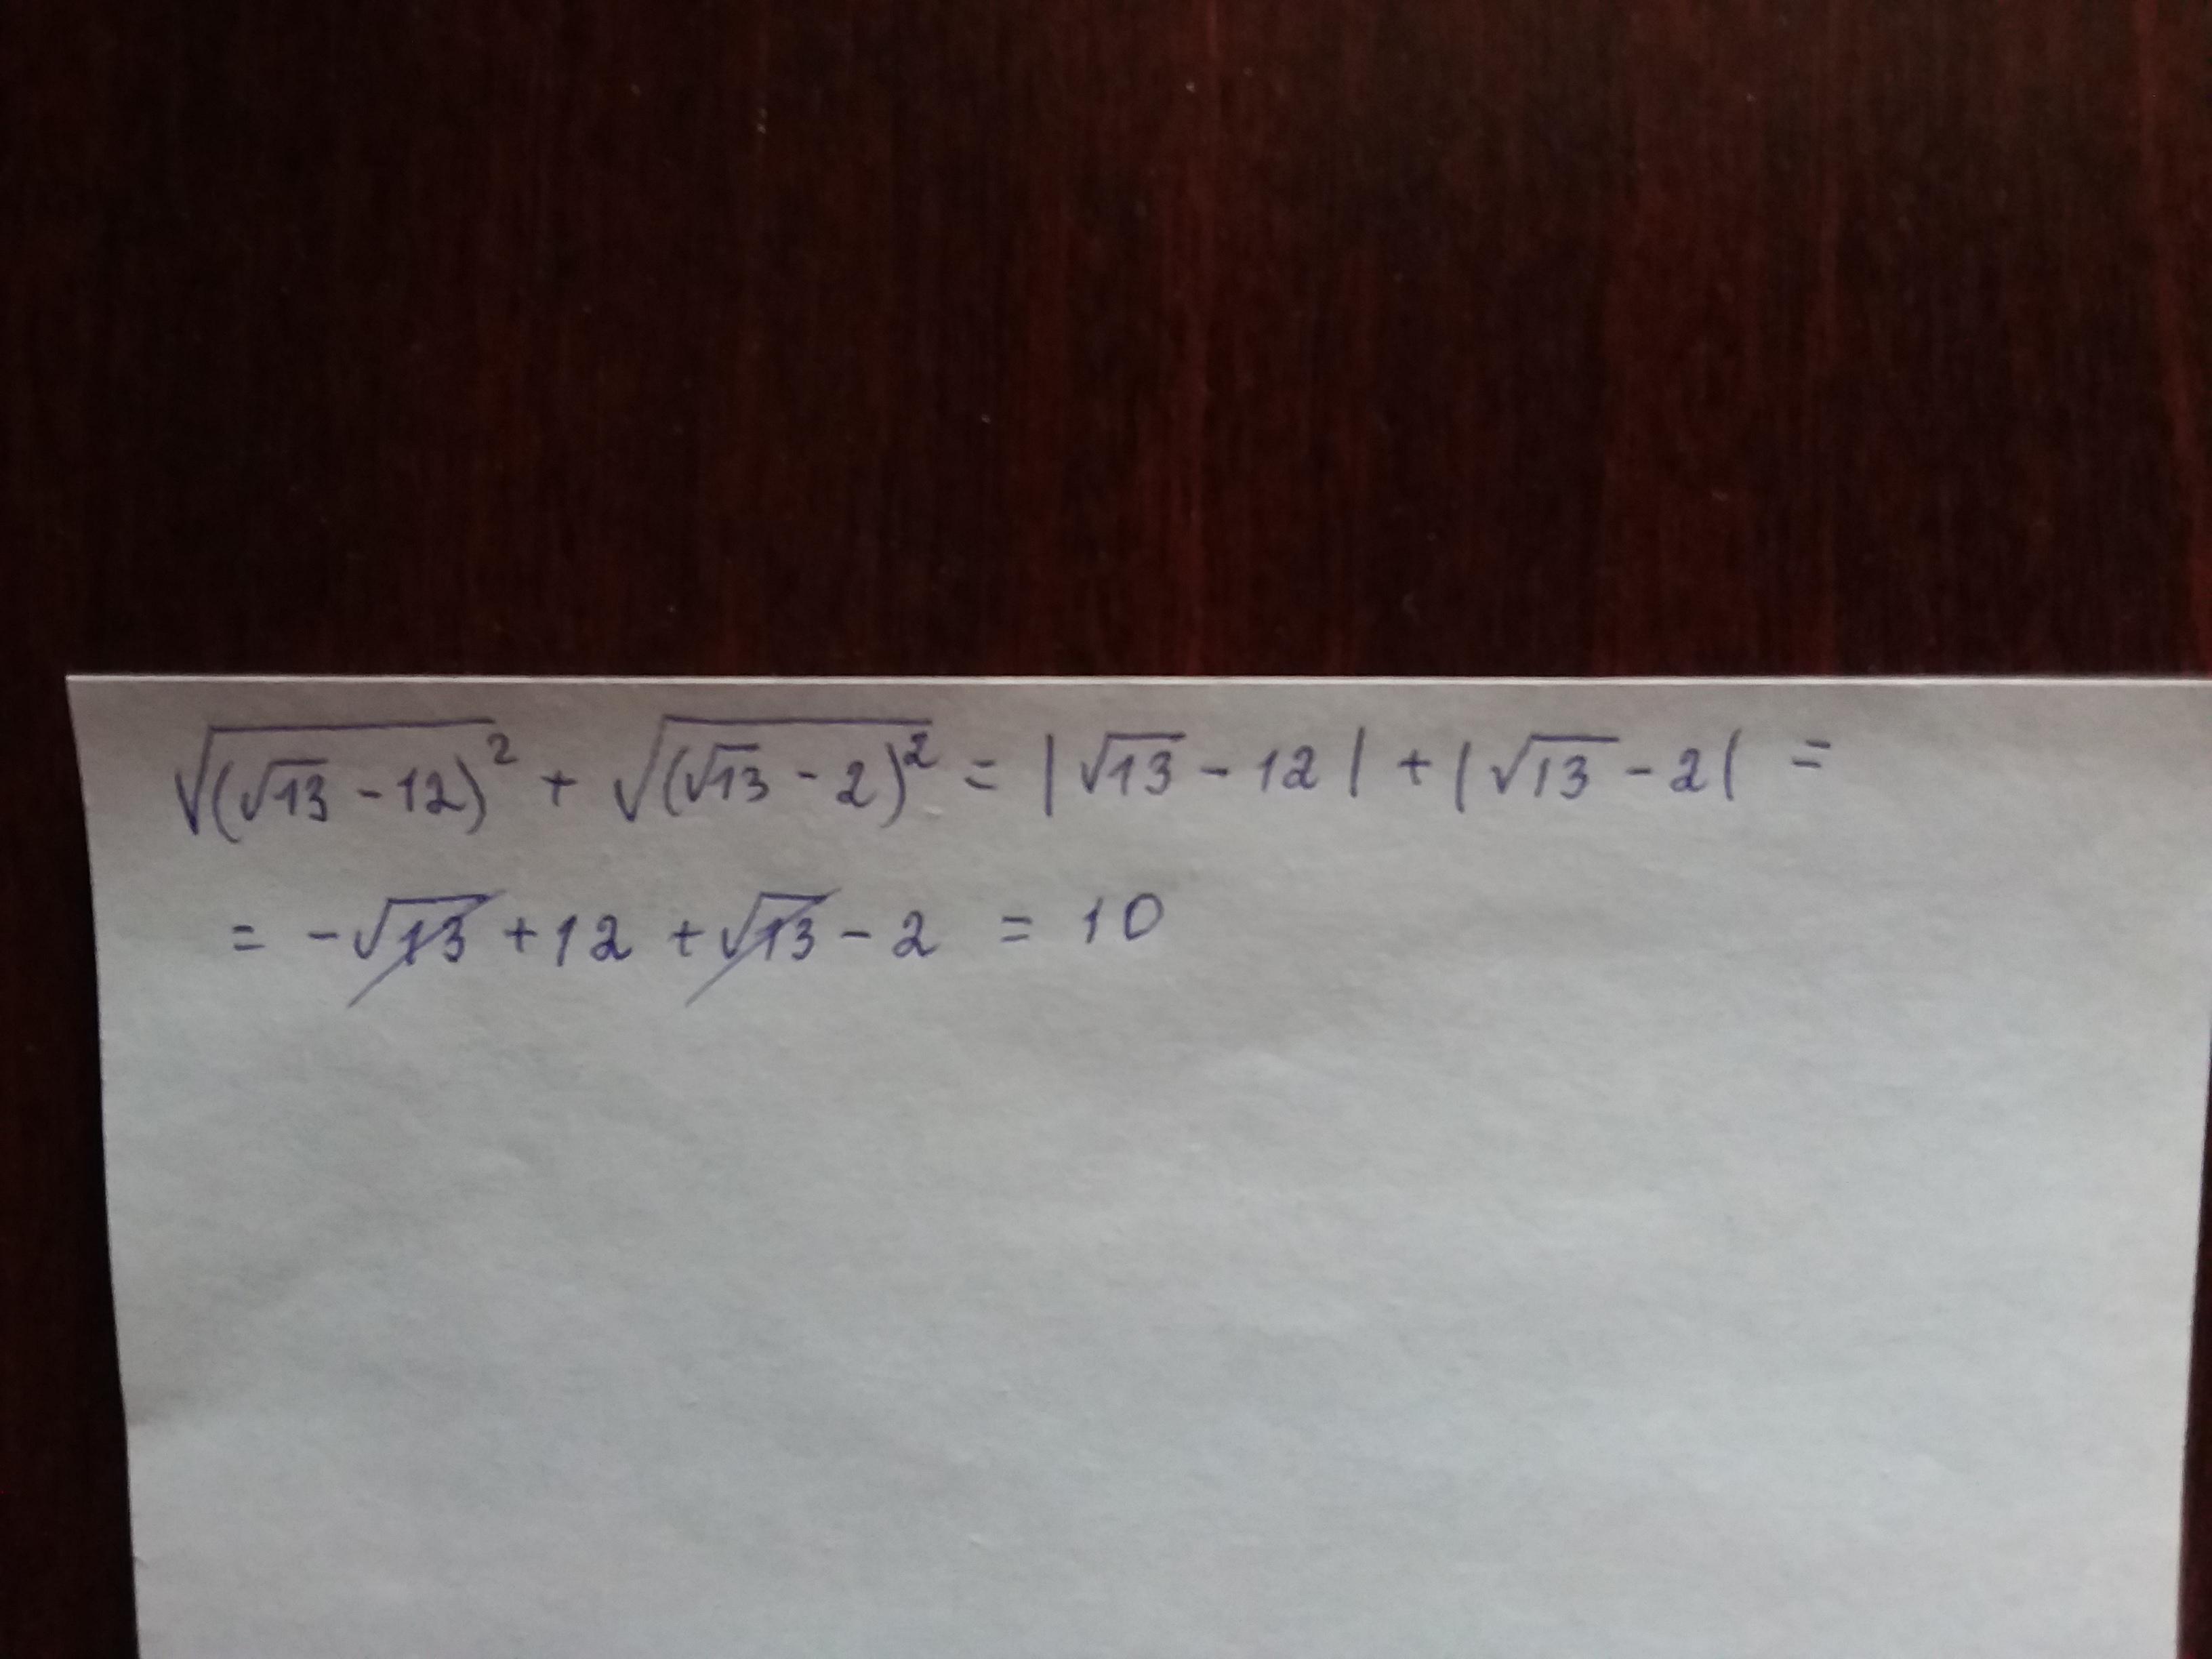 √(√13 - 12)² + √(√13 - 2)² = |√13 - 12| + |√13 - 2| =
= -√13 + 12 + √13 - 2 = 10